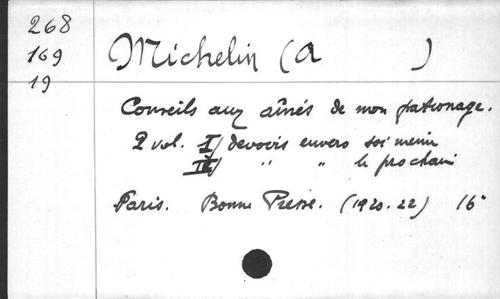 268
169
19
Michelin (A )
Conseils aux aînés de mon patronage.
2 vol. I/ devoirs envers soi même
II/ " " le prochain
Paris. Bonne Presse. (1920-22) 16°